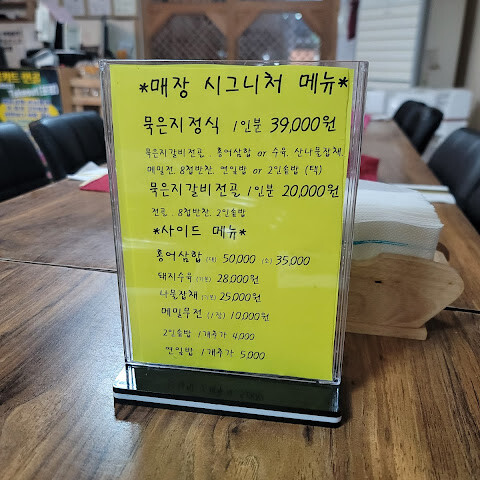 *매장 시그니처 메뉴*
묵은지정식 1인분 39,000원
묵은지갈비전골, 홍어삼합 or 수육, 산나물잡채,
메밀전, 8첩반찬, 연잎밥 or 2인솥밥 (택)
묵은지갈비전골 1인분 20,000원
전골, 8첩반찬, 2인솥밥
*사이드 메뉴*
홍어삼합 (대) 50,000 (소) 35,000
돼지수육 28,000원
나물잡채 25,000원
메밀무전 10,000원
2인솥밥 1개추가 4,000
연잎밥 1개추가 5,000